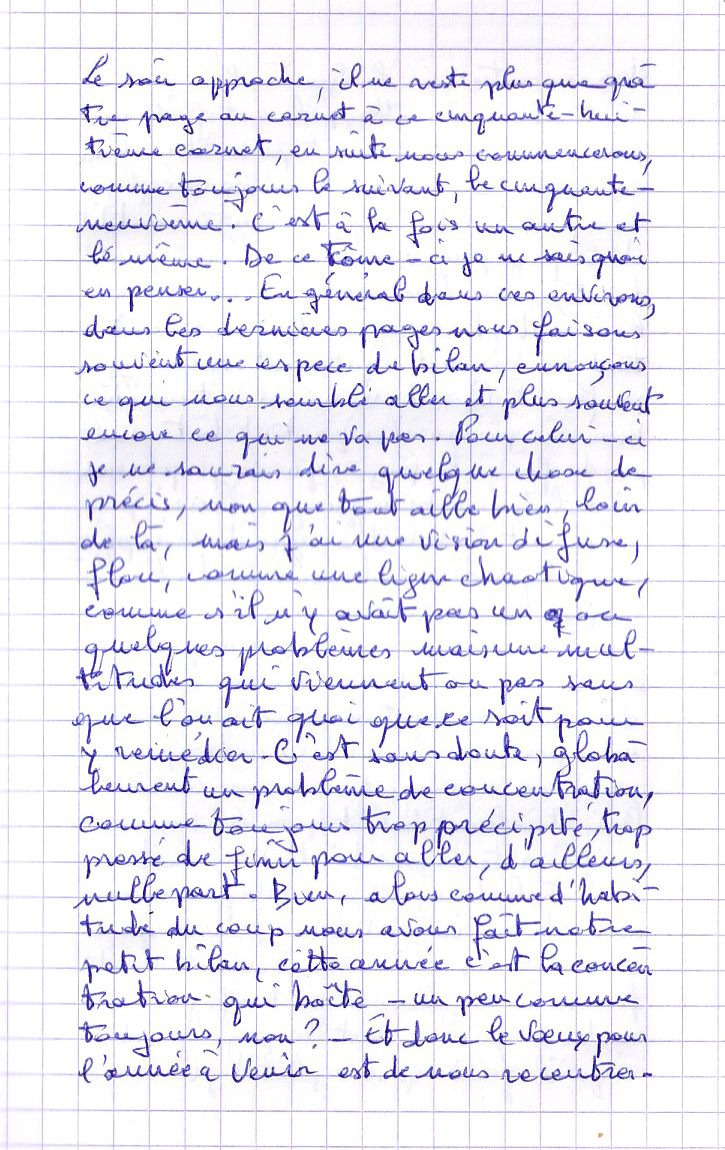 Le soir approche, il ne reste plus que qua
tre page au carnet à ce cinquante-hui-
tième carnet, en suite nous commencerons,
comme toujours le suivant, le cinquante-
neuvième. C'est à la fois un autre et
le même. De ce tome-ci je ne sais quoi
en penser... En général dans ces environs,
dans les dernières pages nous faisons
souvent une espece de bilan, ennonçons
ce qui nous semble aller et plus souvent
encore ce qui ne va pas. Pour celui-ci
je ne saurais dire quelque chose de
précis, non que tout aille bien, loin
de là, mais j'ai une vision difuse,
floue, comme une ligne chaotique,
comme s'il n'y avait pas un ou
quelques problèmes mais une mul-
titudes qui viennent ou pas sans
que l'on ait quoi que ce soit pour
y remédier. C'est sans doute, globa
lement un problème de concentration,
comme toujours trop précipité, trop
pressé de finir pour aller, d'ailleurs,
nulle part. Bien, alors comme d'habi-
tude du coup nous avons fait notre
petit bilan, cette année c'est la concen
tration qui boîte - un peu comme
toujours, non ? - Et donc le vœux pour
l'année à venir est de nous recentrer.